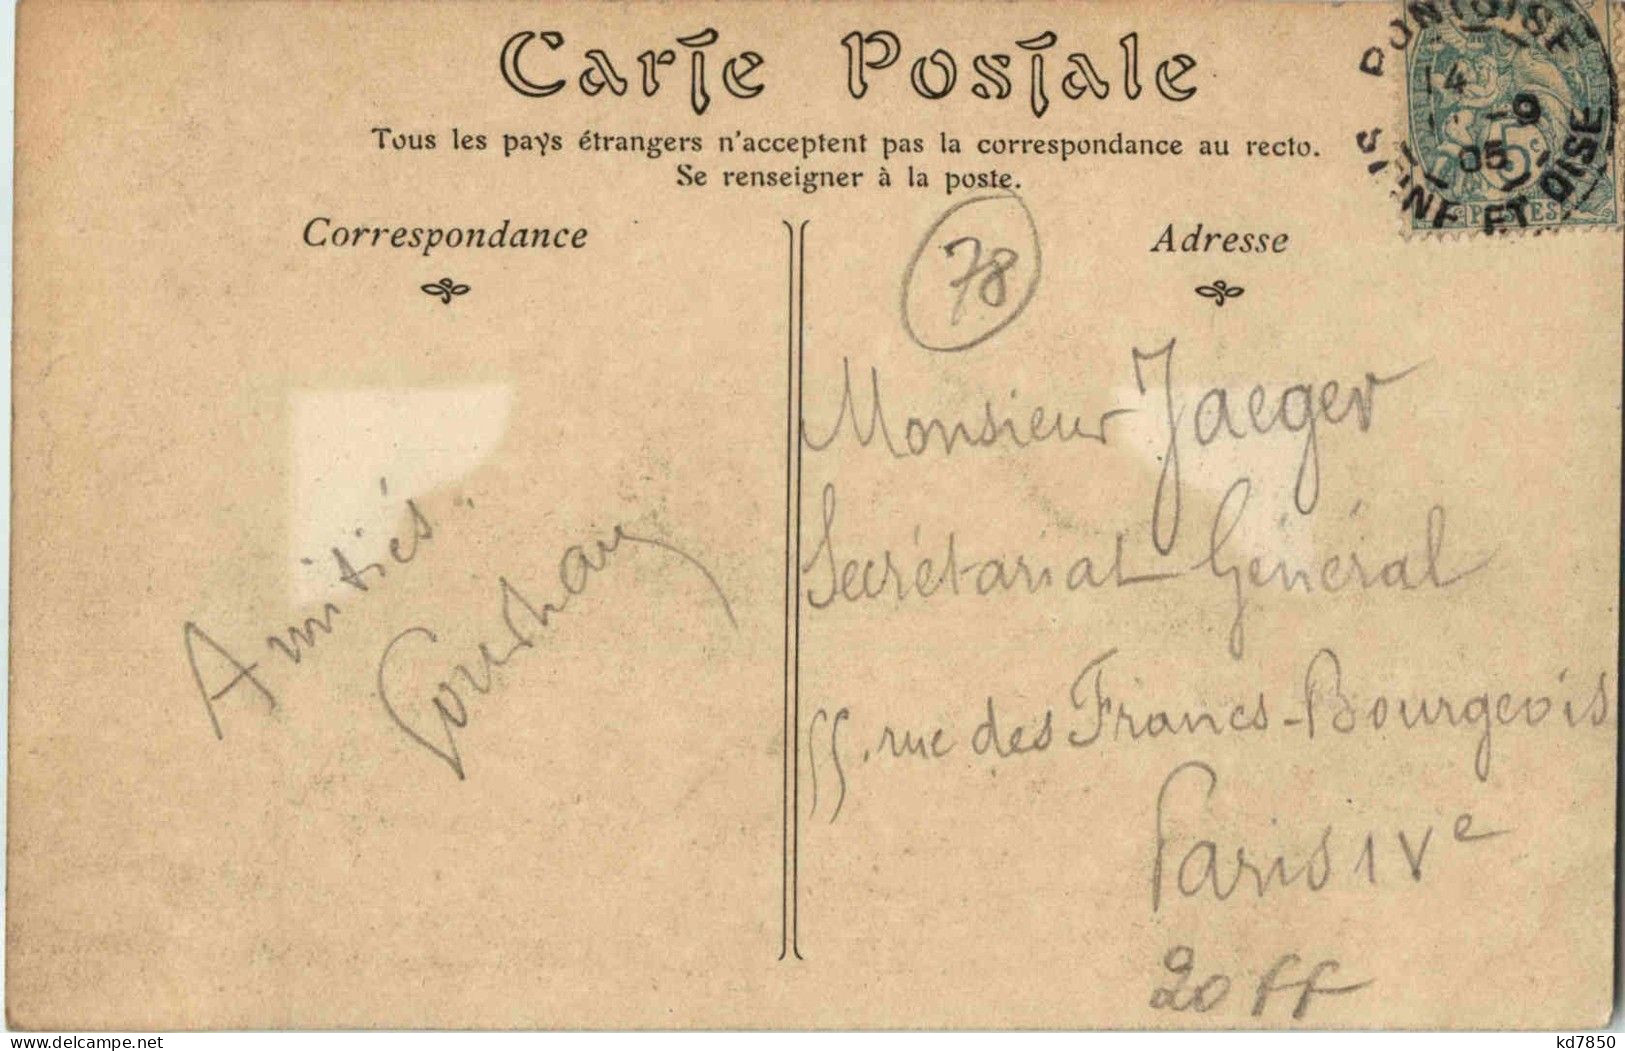 Carte Postale
Tous les pays étrangers n'acceptent pas la correspondance au recto.
Se renseigner à la poste.
Correspondance
Adresse
78
PONTOISE
14 -9
05
SEINE ET OISE
5c
POSTES
Monsieur Jaeger
Secrétariat Général
55, rue des Francs-Bourgeois
Paris IVe
20 ff
Amitiés.
kd7850